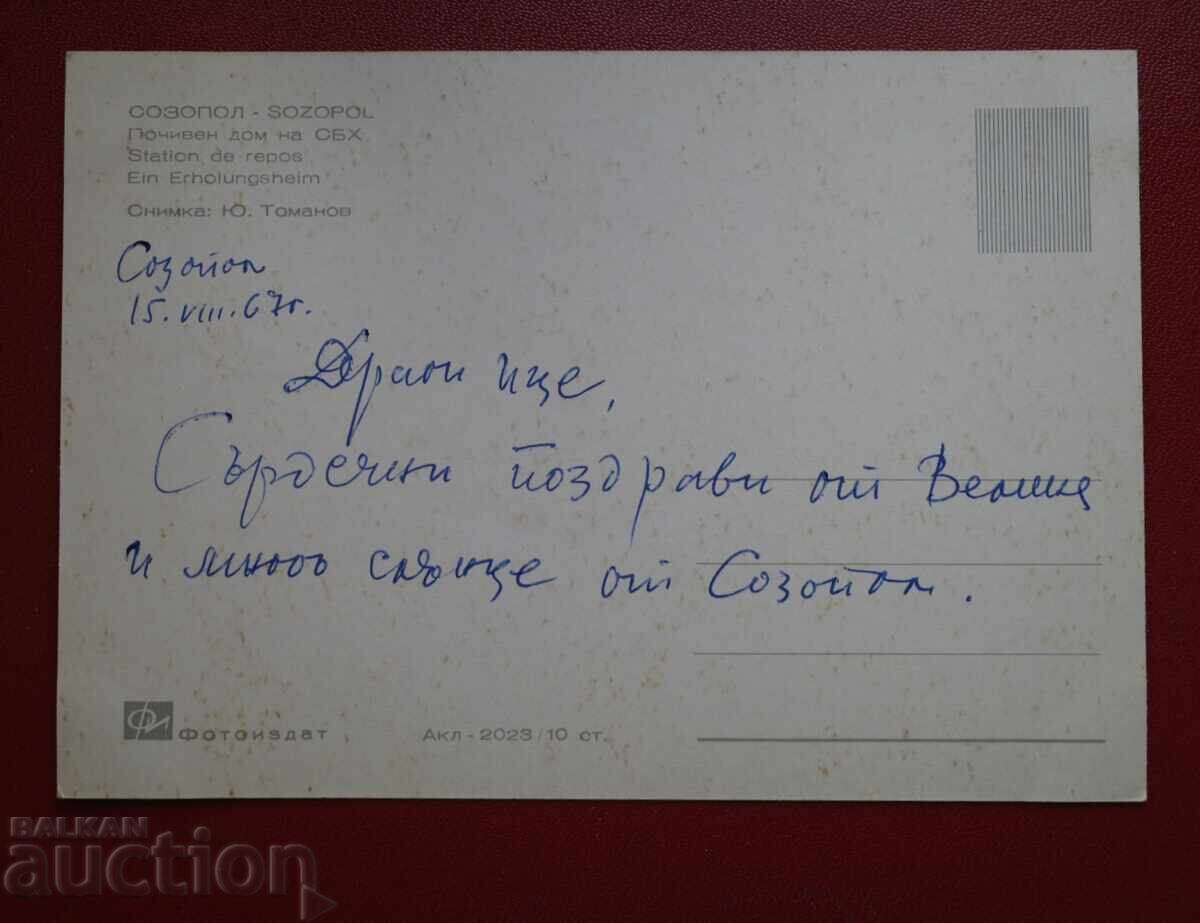 СОЗОПОЛ - SOZOPOL
Почивен дом на СБХ
Station de repos
Ein Erholungsheim
Снимка: Ю. Томанов
Созопол
15. VIII. 67г.
Драги Ице,
Сърдечни поздрави от
и много слънце от Созопол.
Фотоиздат
Акл - 2023/10 ст.
BALKAN
auction